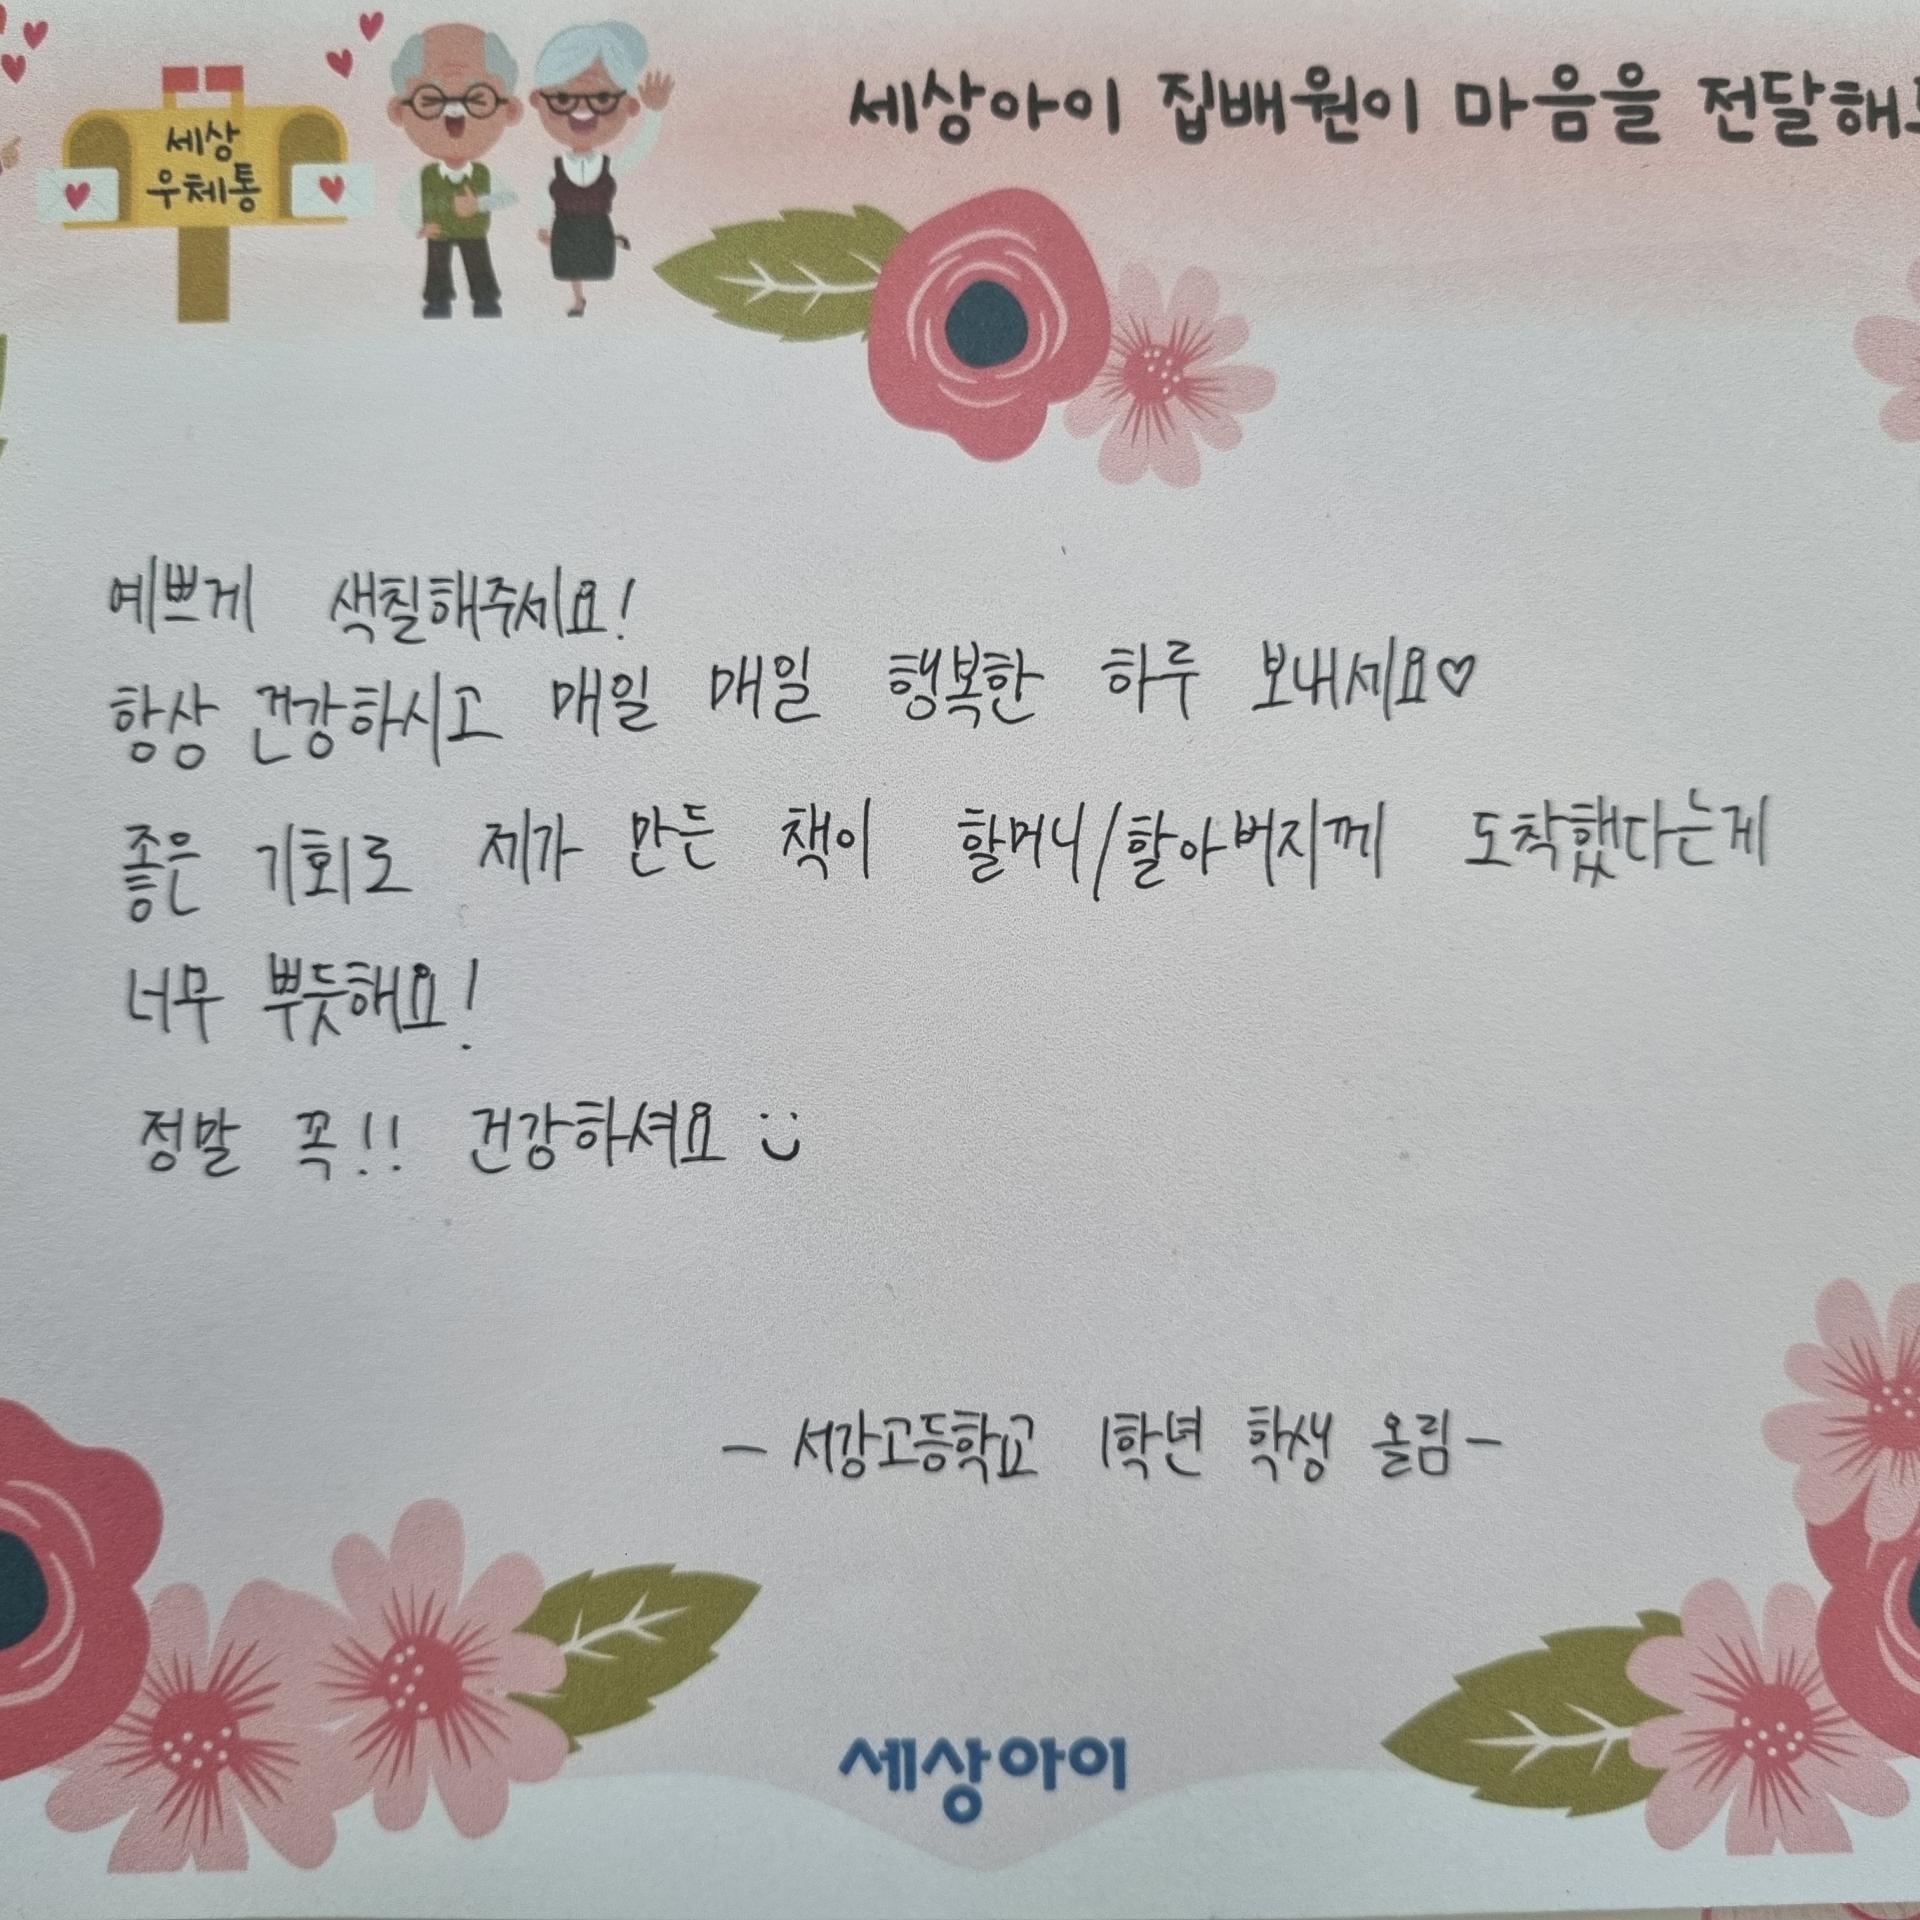 세상아이 집배원이 마음을 전달해
세상
우체통
예쁘게 색칠해주세요!
항상 건강하시고 매일 매일 행복한 하루 보내세요♡
좋은 기회로 제가 만든 책이 할머니/할아버지께 도착했다는게
너무 뿌듯해요!
정말 꼭!! 건강하셔요 :)
- 서강고등학교 1학년 학생 올림 -
세상아이